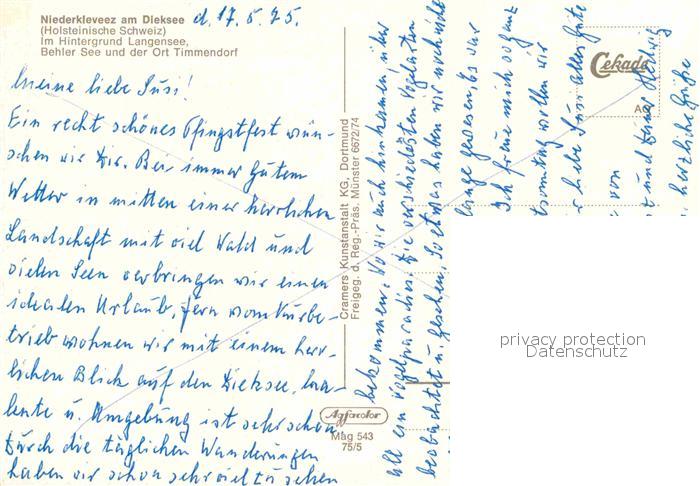 Niederkleveez am Dieksee
(Holsteinische Schweiz)
Im Hintergrund Langensee,
Behler See und der Ort Timmendorf
d. 17.5.75.
Meine liebe Susi!
Ein recht schönes Pfingstfest wün-
schen wir Dir. Bei immer gutem
Wetter in mitten einer herrlichen
Landschaft mit viel Wald und
vielen Seen verbringen wir einen
idealen Urlaub, fern vom Kurbe-
trieb wohnen wir mit einem herr-
lichen Blick auf den Dieksee.
u. Umgebung ist sehr schön
Durch die täglichen Wanderungen
haben wir schon sehr viel zu sehen
bekommen. Wo wir auch hinkamen über
all ein Vogelparadies. Die verschiedensten Vogelarten
beobachtet u. gesehen. So etwas haben wir noch nicht
lange gewesen. Es war
Ich freue mich so ganz
sonntag wollen wir
liebe Susi alles Gute
von
und Deiner Hedwig
herzliche Grüße
Cramers Kunstanstalt KG, Dortmund
Freigeg. d. Reg.-Präs. Münster 6672/74
Cekade
Agfacolor
Mag 543
75/5
privacy protection
Datenschutz